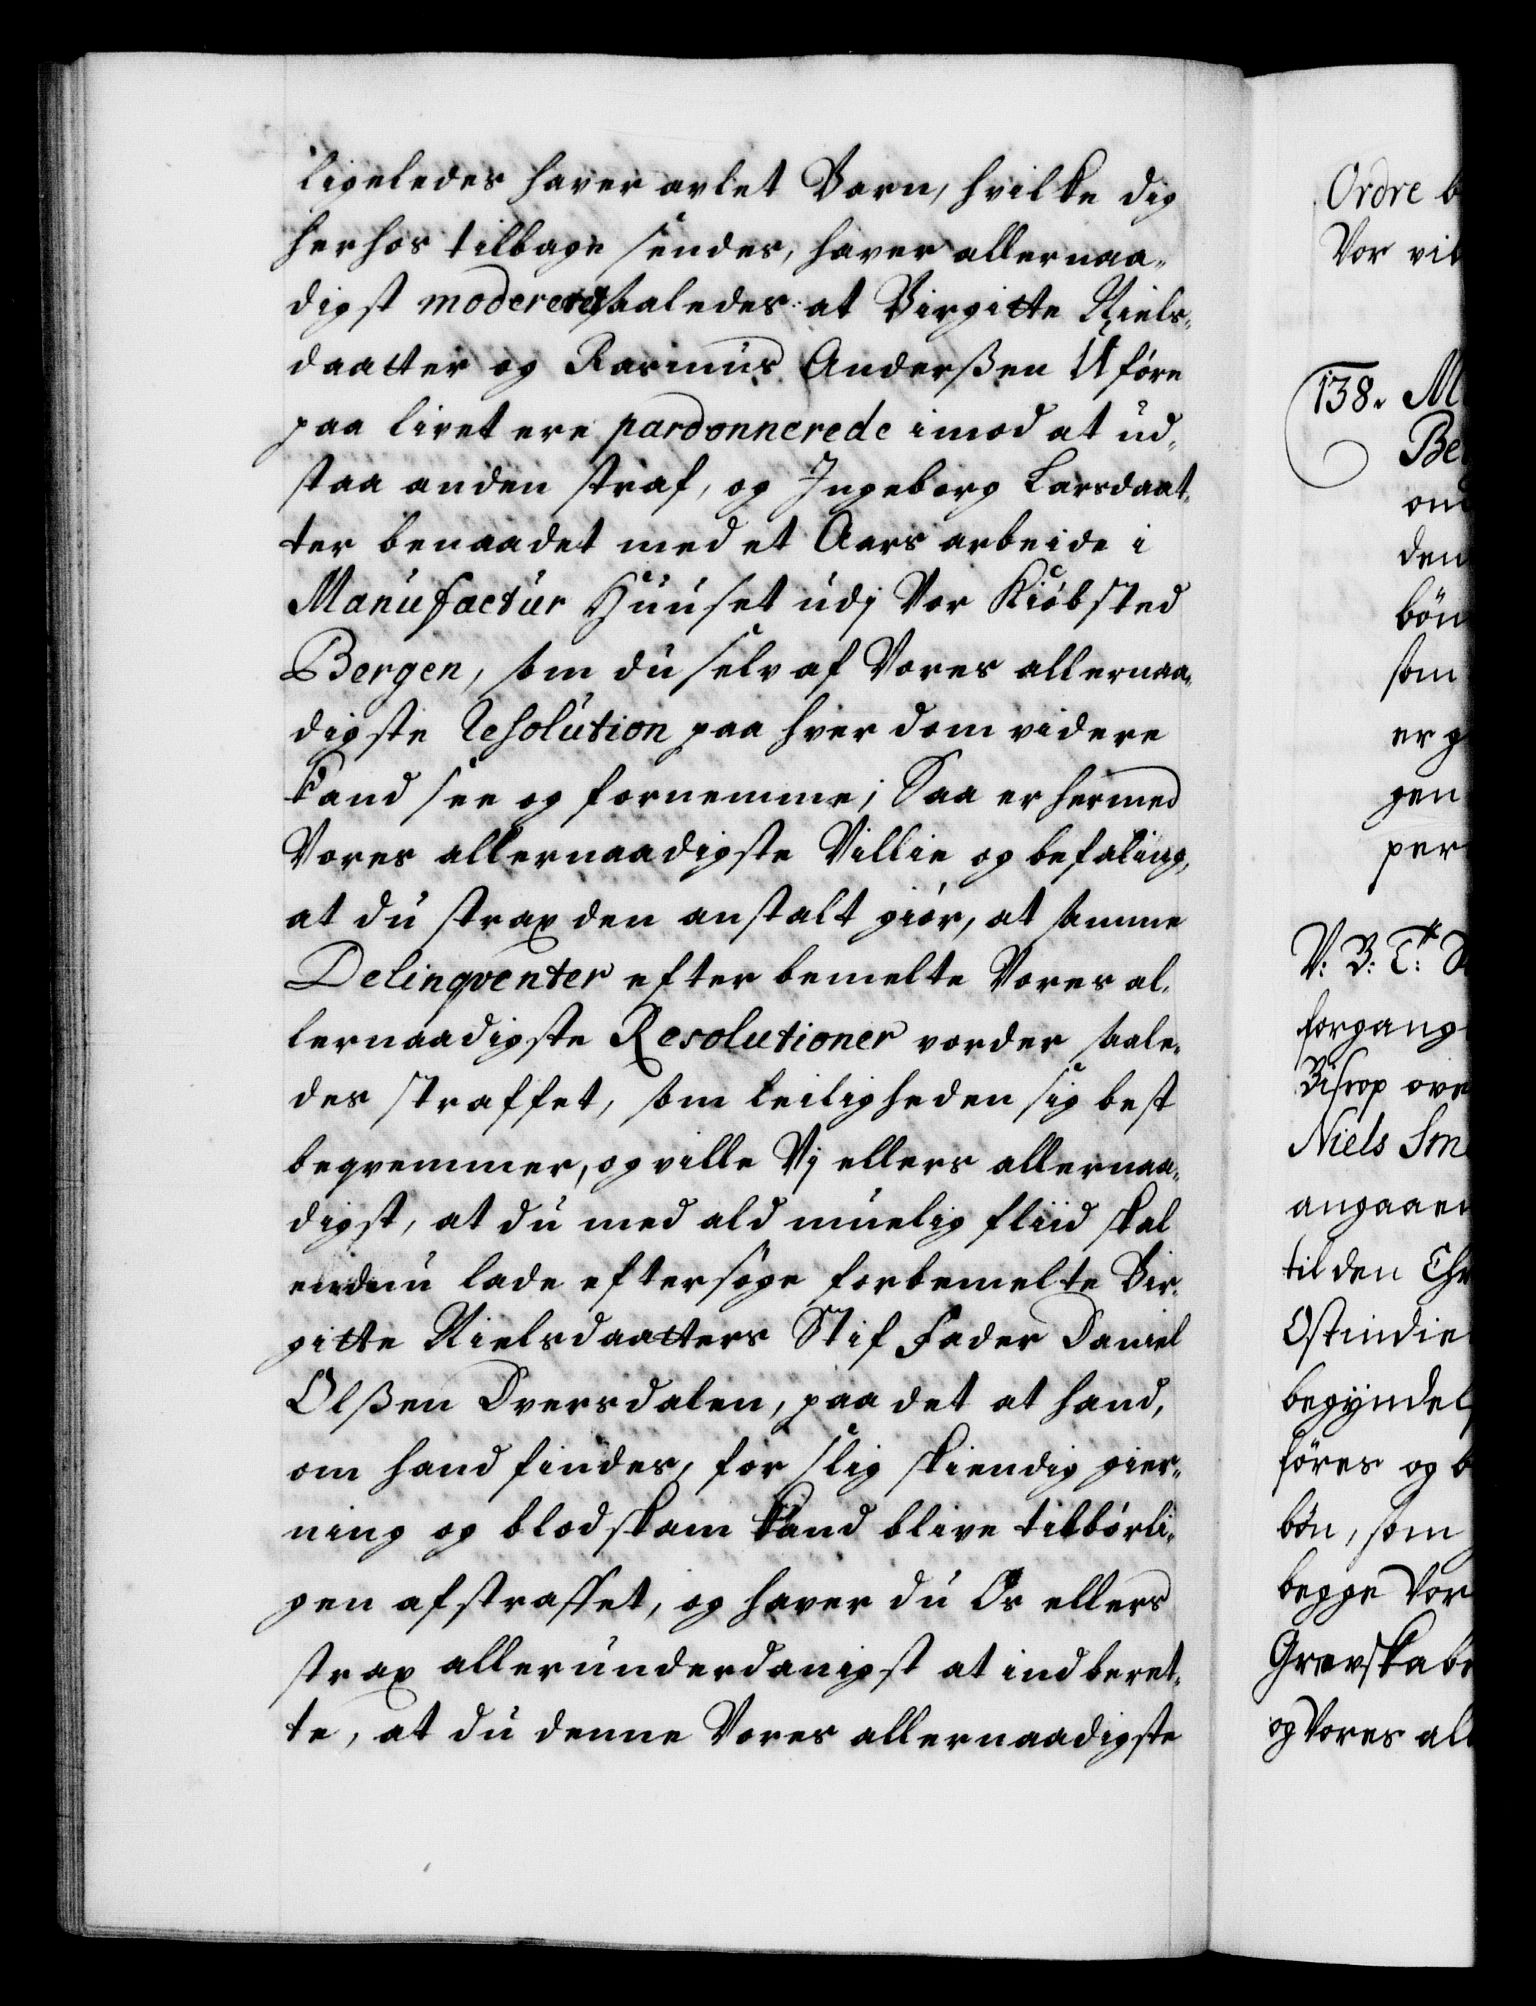 ligeledes haver avlet Barn, hvilke dig
herhos tilbage sendes, haver allernaa-
digst modereret saaledes: at Birgitte Niels-
daatter og Rasmus Anderßen Uføre
paa livet ere pardonnerede imod at ud-
staa anden straf, og Ingeborg Larsdaat-
ter benaadet med et Aars arbeide i
Manufactur Huuset udj Vor Kiøbsted
Bergen, som du selv af Vores allernaa-
digste Resolution paa hver dom videre
kand see og fornemme; Saa er hermed
Vores allernaadigste Villie og befaling,
at du strax den anstalt giør, at samme
Delinqventer efter bemelte Vores al-
lernaadigste Resolutioner vorder saale-
des straffet, som leiligheden sig best
beqvemmer, og ville Vj ellers allernaa-
digst, at du med ald muelig fliid skal
endnu lade eftersøge forbemelte Bir-
gitte Nielsdaatters Stif Fader Daniel
Olßen Dversdalen, paa det at hand,
om hand findes, for slig skiendig gier-
ning og blodskam kand blive tilbørli-
gen afstraffet, og haver du Os ellers
strax allerunderdanigst at indberet-
te, at du denne Vores allernaadigste
Ordre b
Vor vil
138. M
Be
om
den
bön
som
er g
gen
per
V: B: T:
forgang
Biscop ove
Niels Sm
angaaen
til den Chr
Ostindie
begyndel
føres og b
bøn, som
begge Vor
Grevskabe
og Vores all